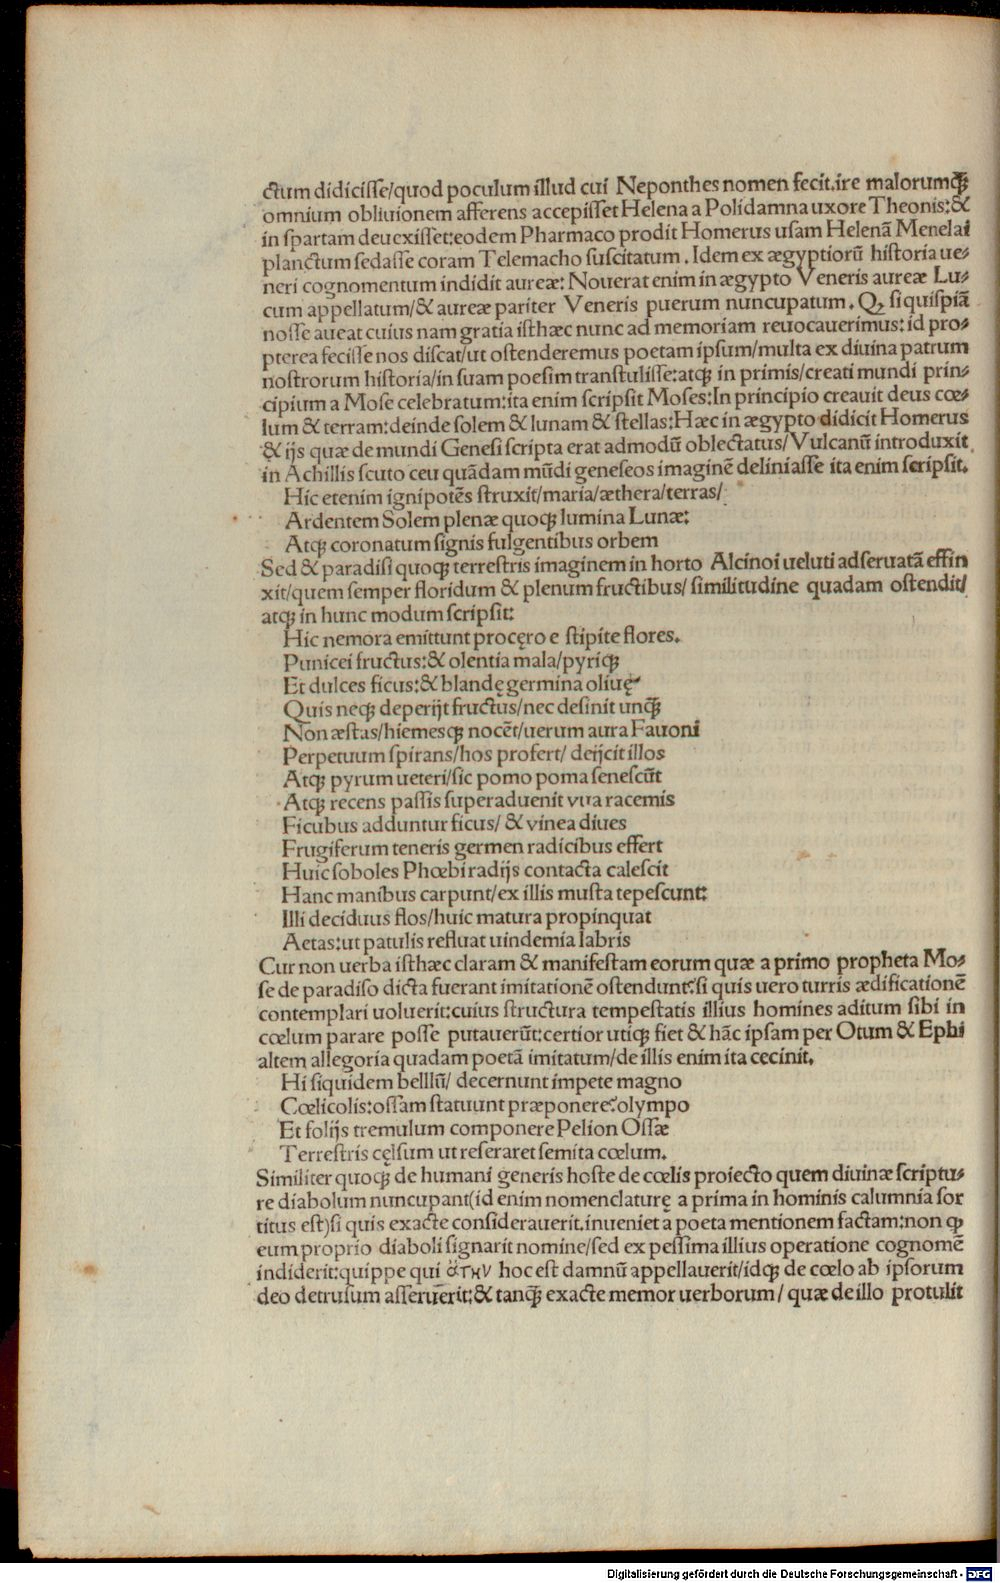 ctum didicisse/quod poculum illud cui Neponthes nomen fecit.ire malorumqꝫ
omnium obliuionem afferens accepisset Helena a Polidamna uxore Theonis:&
in spartam deuexisset:eodem Pharmaco prodit Homerus usam Helenã Menelai
planctum sedasse coram Telemacho suscitatum. Idem ex ægyptiorũ historia ue-
neri cognomentum indidit aureæ: Nouerat enim in ægypto Veneris aureæ Lu-
cum appellatum/& aureæ pariter Veneris puerum nuncupatum. Qꝫ si quispiã
nosse aueat cuius nam gratia isthæc nunc ad memoriam reuocauerimus: id pro-
pterea fecisse nos discat/ut ostenderemus poetam ipsum/multa ex diuina patrum
nostrorum historia/in suam poesim transtulisse:atqꝫ in primis/creati mundi prin-
cipium a Mose celebratum:ita enim scripsit Moses:In principio creauit deus cœ-
lum & terram:deinde solem & lunam & stellas:Hæc in ægypto didicit Homerus
& ijs quæ de mundi Genesi scripta erat admodũ oblectatus/Vulcanũ introduxit
in Achillis scuto ceu quãdam mũdi geneseos imaginẽ deliniasse ita enim scripsit.
Hic etenim ignipotẽs struxit/maria/æthera/terras/
Ardentem Solem plenæ quoqꝫ lumina Lunæ:
Atqꝫ coronatum signis fulgentibus orbem
Sed & paradisi quoqꝫ terrestris imaginem in horto Alcinoi ueluti adseruatã effin
xit/quem semper floridum & plenum fructibus/ similitudine quadam ostendit/
atqꝫ in hunc modum scripsit:
Hic nemora emittunt procęro e stipite flores.
Punicei fructus:& olentia mala/pyriqꝫ
Et dulces ficus:& blandę germina oliuę
Quis neqꝫ deperijt fructus/nec desinit unqꝫ̃
Non æstas/hiemesqꝫ nocẽt/uerum aura Fauoni
Perpetuum spirans/hos profert/ deijcit illos
Atqꝫ pyrum ueteri/sic pomo poma senescũt
Atqꝫ recens passis superaduenit vua racemis
Ficubus adduntur ficus/ & vinea diues
Frugiferum teneris germen radicibus effert
Huic soboles Phœbi radijs contacta calescit
Hanc manibus carpunt/ex illis musta tepescunt:
Illi deciduus flos/huic matura propinquat
Aetas:ut patulis refluat uindemia labris
Cur non uerba isthæc claram & manifestam eorum quæ a primo propheta Mo-
se de paradiso dicta fuerant imitationẽ ostendunt?si quis uero turris ædificationẽ
contemplari uoluerit:cuius structura tempestatis illius homines aditum sibi in
cœlum parare posse putauerũt:certior utiqꝫ fiet & hãc ipsam per Otum & Ephi
altem allegoria quadam poetã imitatum/de illis enim ita cecinit.
Hi siquidem belllũ/ decernunt impete magno
Cœlicolis:ossam statuunt præponere?olympo
Et folijs tremulum componere Pelion Ossæ
Terrestris cęlsum ut reseraret semita cœlum.
Similiter quoqꝫ de humani generis hoste de cœlis proiecto quem diuinæ scriptu-
re diabolum nuncupant(id enim nomenclaturę a prima in hominis calumnia sor
titus est)si quis exacte considerauerit.inueniet a poeta mentionem factam:non ꝙ
eum proprio diaboli signarit nomine/sed ex pessima illius operatione cognomẽ
indiderit:quippe qui ἄτην hoc est damnũ appellauerit/idqꝫ de cœlo ab ipsorum
deo detrusum asseruẽrit:& tanqꝫ̃ exacte memor uerborum/ quæ de illo protulit
Digitalisierung gefördert durch die Deutsche Forschungsgemeinschaft - DFG